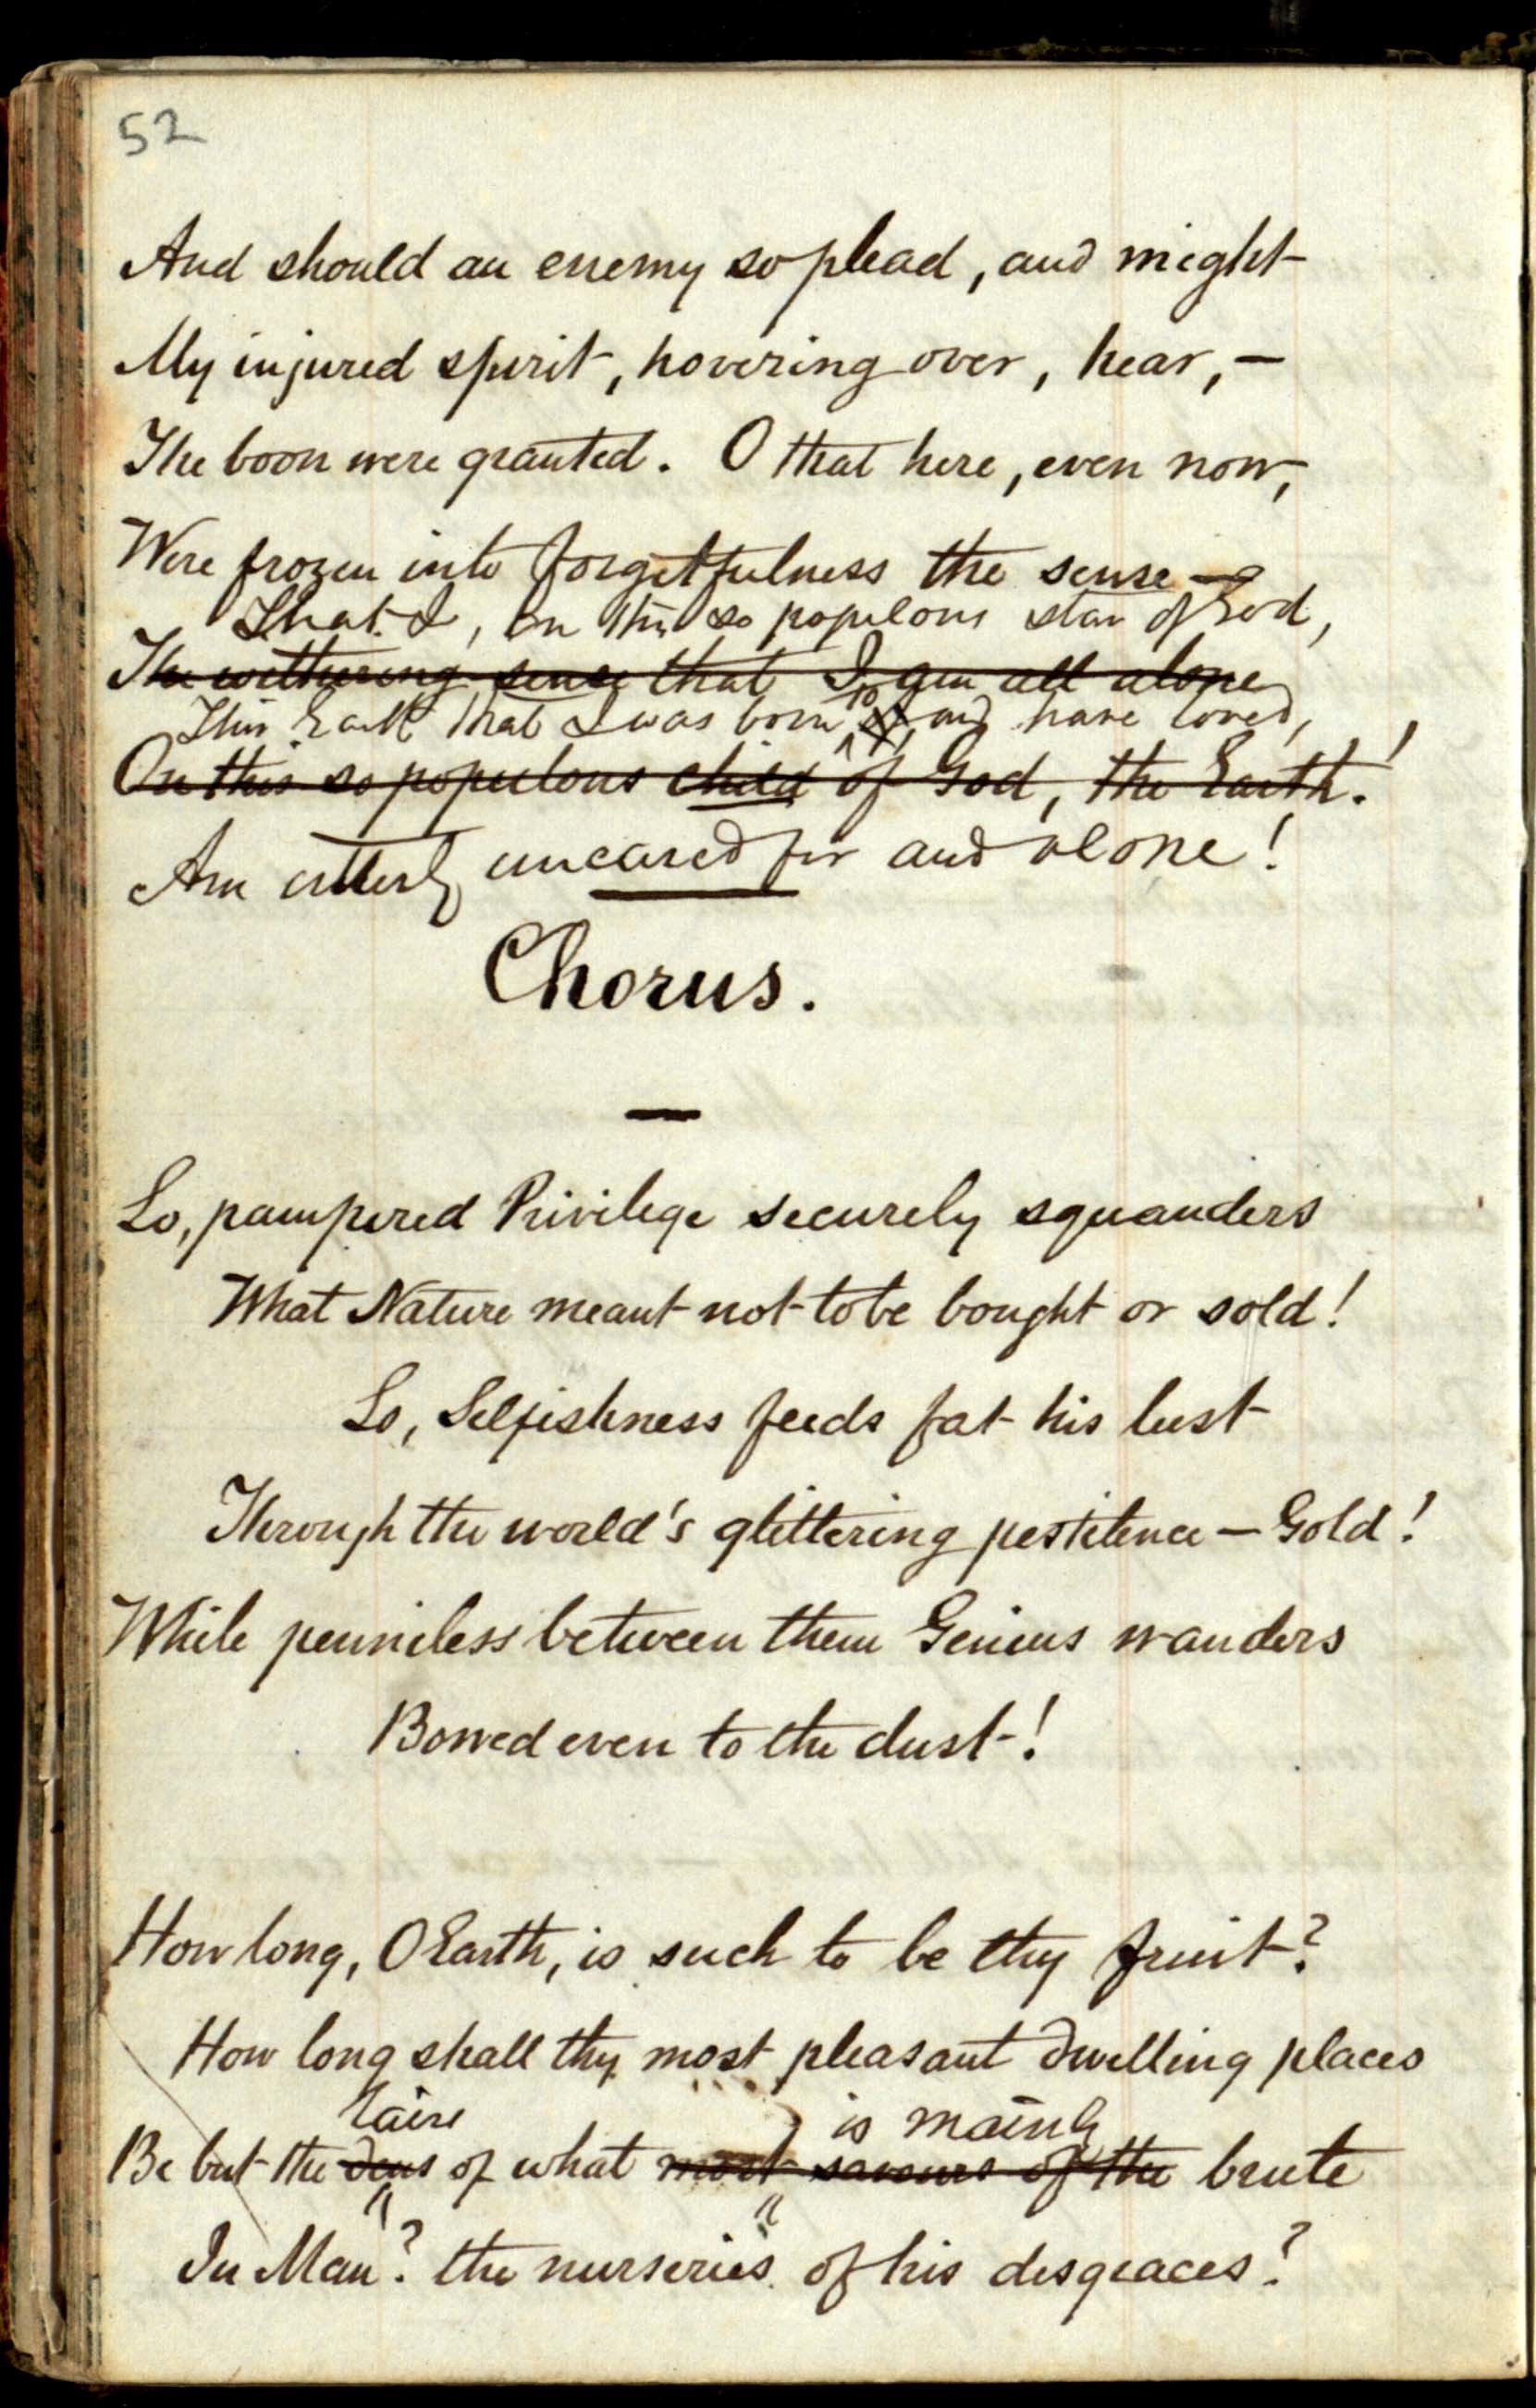 52
And should an enemy so plead, and might
My injured spirit, hovering over, hear, —
The boon were granted. O that here, even now,
Were frozen into forgetfulness the sense —
That I, on this so populous star of God,
The withering sense that I am all alone
This Earth that I was born to, and have loved,
On this so populous child of God, the Earth!
Am utterly uncared for and alone!
Chorus.
Lo, pampered Privilege securely squanders
What Nature meant not to be bought or sold!
Lo, Selfishness feeds fat his lust
Through the world's glittering pestilence — Gold!
While penniless between them Genius wanders
Bowed even to the dust!
How long, O Earth, is such to be thy fruit?
How long shall thy most pleasant dwelling places
lairs is mainly
Be but the dens of what most savours of the brute
In Man? the nurseries of his disgraces?